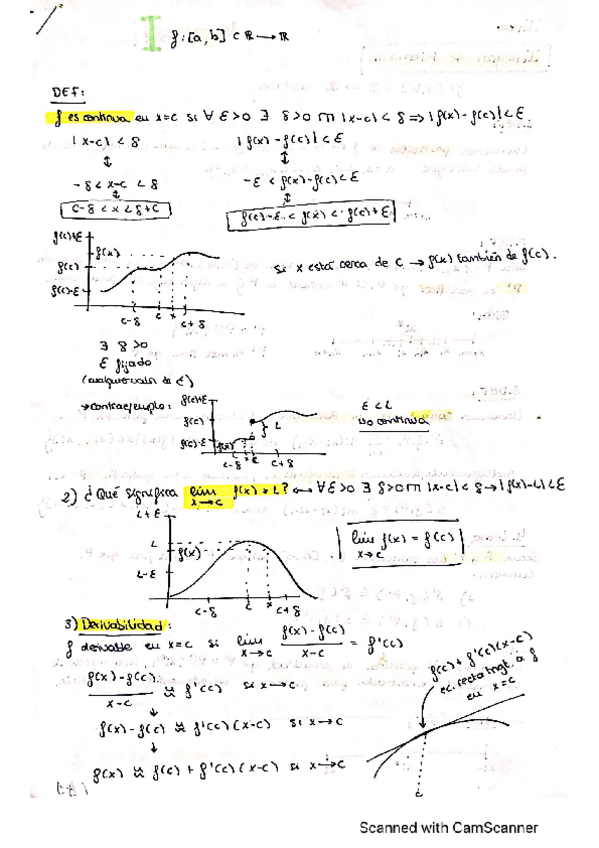 I f: [a,b] ⊂ ℝ → ℝ
DEF:
f es continua en x=c si ∀ ε>0 ∃ δ>0 m |x-c| < δ => |f(x) - f(c)| < ε
|x-c| < δ |f(x) - f(c)| < ε
↕ ↕
-δ < x-c < δ -ε < f(x)-f(c) < ε
↕ ↕
c-δ < x < δ+c f(c)-ε < f(x) < f(c)+ε
f(c)+ε
f(x)
f(c)
f(c)-ε
c-δ c x c+δ
si x está cerca de c → f(x) también de f(c).
∃ δ >0
ε fijado
(cualquier valor de ε)
→contraejemplo:
f(c)+ε
f(c)
f(c)-ε
f(x)
L
c-δ x c c+δ
ε < L
no continua
2) ¿Qué significa lim x→c f(x) = L? ↔ ∀ ε>0 ∃ δ>0 m |x-c| < δ → |f(x)-L| < ε
L+ε
L
f(x)
L-ε
c-δ c x c+δ
lim x→c f(x) = f(c)
3) Derivabilidad:
f derivable en x=c si lim x→c (f(x) - f(c))/(x-c) = f'(c)
(f(x)-f(c))/(x-c) ≈ f'(c) si x→c
↓
f(x) - f(c) ≈ f'(c) (x-c) si x→c
↓
f(x) ≈ f(c) + f'(c) (x-c) si x→c
f(c) + f'(c)(x-c)
ec. recta tangt. a f
en x=c
c
Scanned with CamScanner